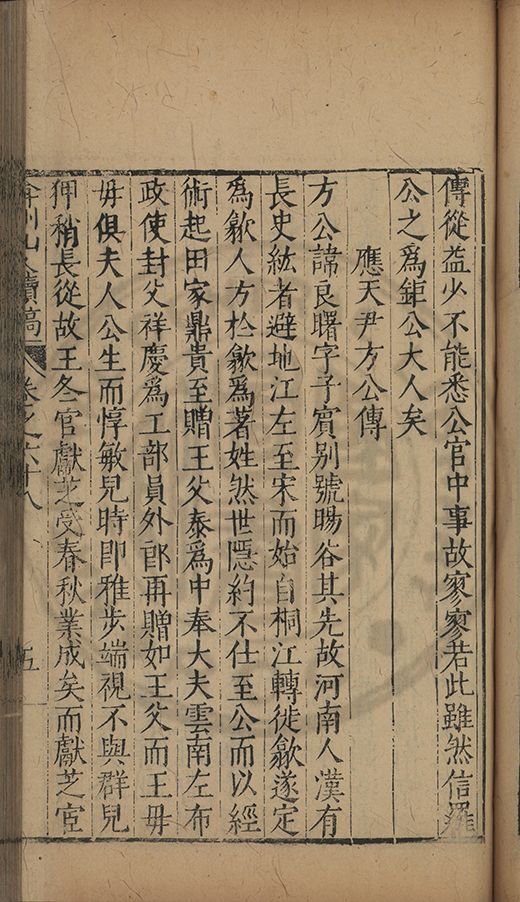 傳從益少不能悉公官中事故寥寥若此雖然信羅
公之爲鉅公大人矣
應天尹方公傳
方公諱良曙字子賓别號暘谷其先故河南人漢有
長史紘者避地江左至宋而始自桐江轉徙歙遂定
爲歙人方於歙爲著姓然世隱約不仕至公而以經
術起田家鼎貴至贈王父泰爲中奉大夫雲南左布
政使封父祥慶爲工部員外郎再贈如王父而王母
毋俱夫人公生而惇敏兒時即雅步端視不與群兒
狎稍長從故王冬官獻芝受春秋業成矣而獻芝宦
弇州山人續稿 卷之六十八 五